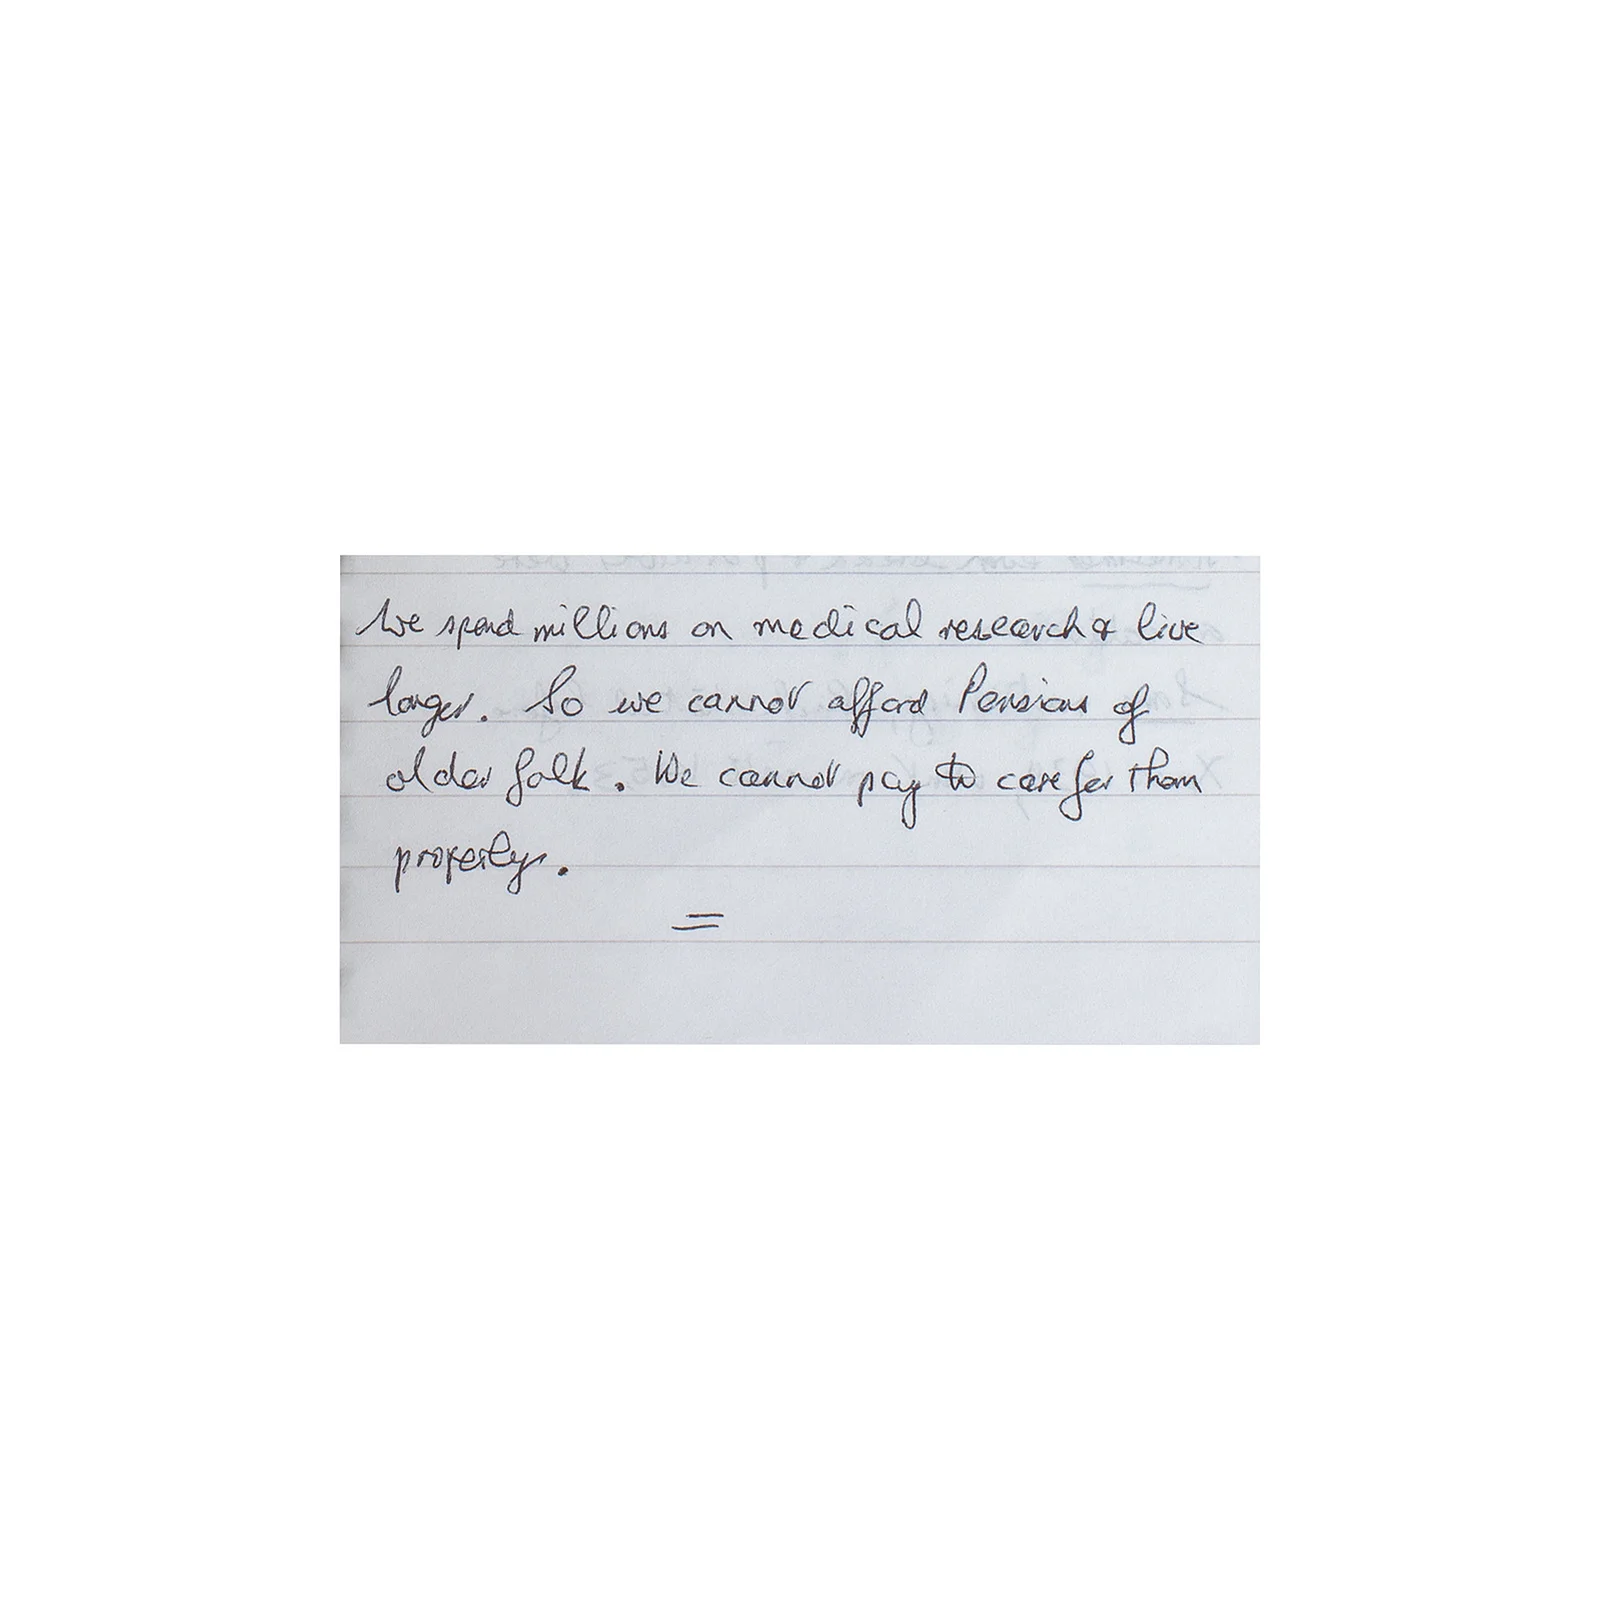 We spend millions on medical research & live
longer. So we cannot afford Pensions of
older folk. We cannot pay to care for them
properly.